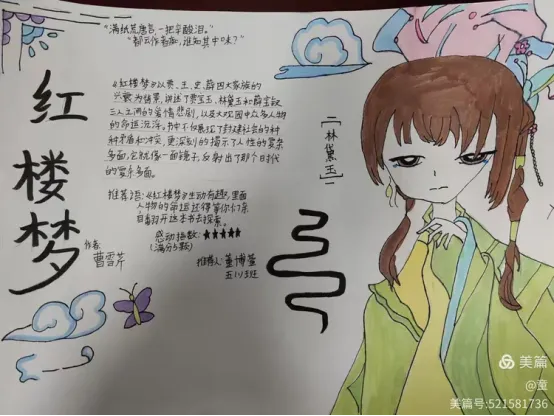 “满纸荒唐言,一把辛酸泪。”
“都云作者痴,谁知其中味?”
红楼梦
作者:
曹雪芹
《红楼梦》以贾、王、史、薛四大家族的
兴衰为背景,讲述了贾宝玉、林黛玉和薛宝钗
三人之间的爱情悲剧,以及大观园中众多人物
的命运沉浮。书中不仅展现了封建社会的种
种矛盾和冲突,更深刻的揭示了人性的复杂
多面,它就像一面镜子,反射出了那个时代
的复杂多面。
推荐语:《红楼梦》生动有趣,里面
人物的命运还得等你们亲
自翻开这本书去探索。
感动指数:★★★★★
(满分5颗)
推荐人:董博萱
五(1)班
[林黛玉]
美篇
@董
美篇号:521581736